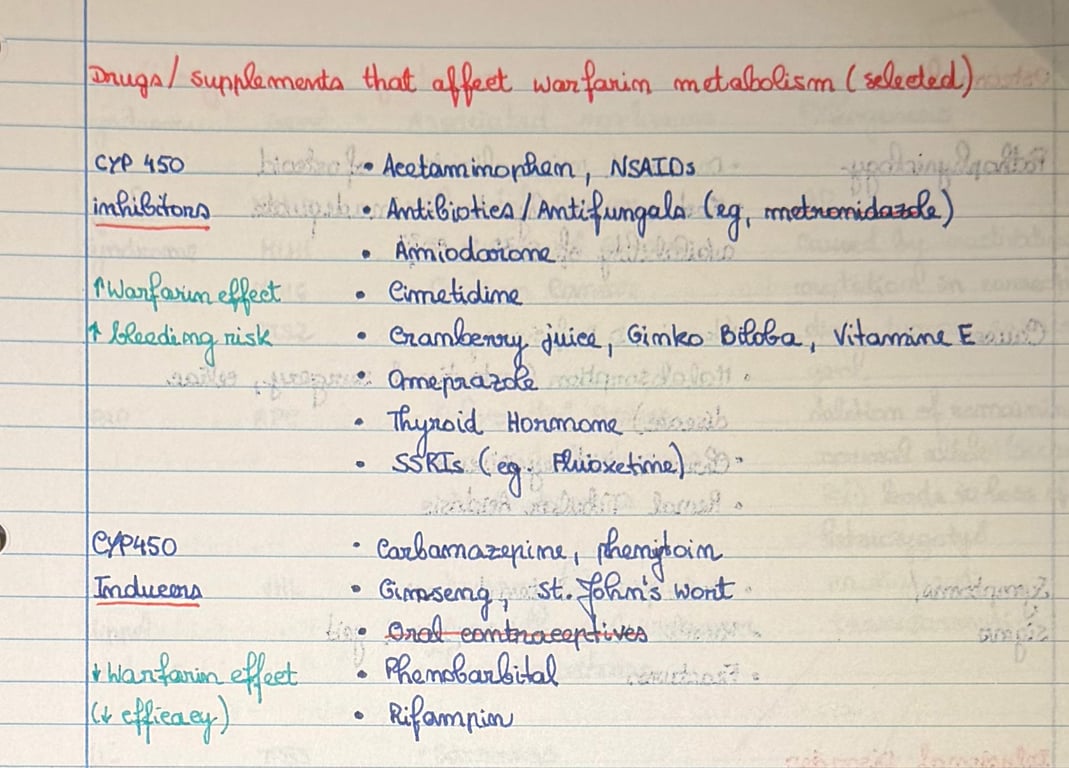 Drugs/ supplements that affect warfarin metabolism (selected)
CYP 450 • Acetaminophen, NSAIDs
inhibitors • Antibiotics/Antifungals (eg, metronidazole)
• Amiodarone
↑Warfarin effect • Cimetidine
↑ bleeding risk • Cranberry juice, Ginko Biloba, Vitamine E
• Omeprazole
• Thyroid Hormone
• SSRIs (eg. Fluioxetine)
CYP450 • Carbamazepine, phenytoin
Inducers • Ginseng, St. John's wort
• Oral contraceptives
↓ Warfarin effect • Phenobarbital
(↓ efficacy) • Rifampin